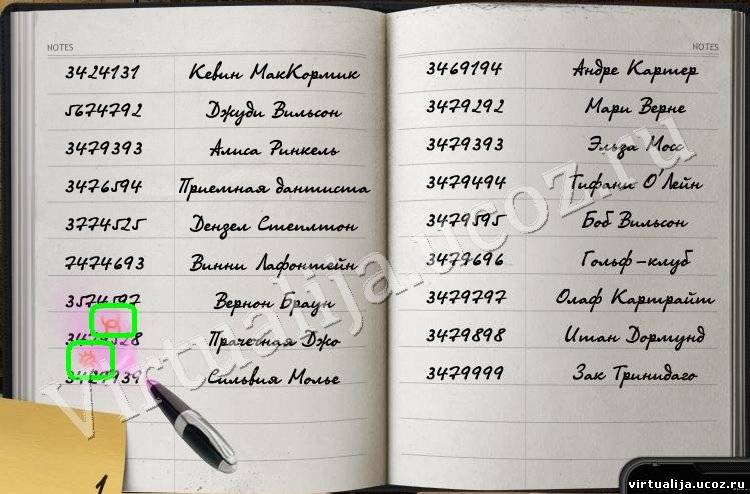 NOTES
3424131 Кевин МакКормик
5674792 Джуди Вильсон
3479393 Алиса Ринкель
3476594 Приемная дантиста
3774525 Дензел Степлтон
7474693 Винни Лафонтейн
3574597 Вернон Браун
Прачечная Джо
3427939 Сильвия Молье
1
NOTES
3469194 Андре Картер
3479292 Мари Верне
3479393 Эльза Мосс
3479494 Тифани О'Лейн
3479595 Боб Вильсон
3479696 Гольф-клуб
3479797 Олаф Картрайт
3479898 Итан Дормунд
3479999 Зак Тринидаго
virtualija.ucoz.ru
virtualija.ucoz.ru